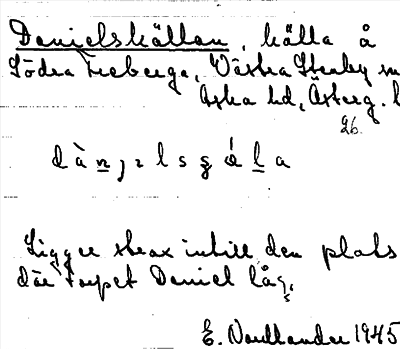 Danielskällan, källa å
Södra Freberga, Västra Stenby sn
Aska hd, Österg. l
26.
Ligger strax intill den plats
där torpet Daniel låg.
E. Nordlander 1945